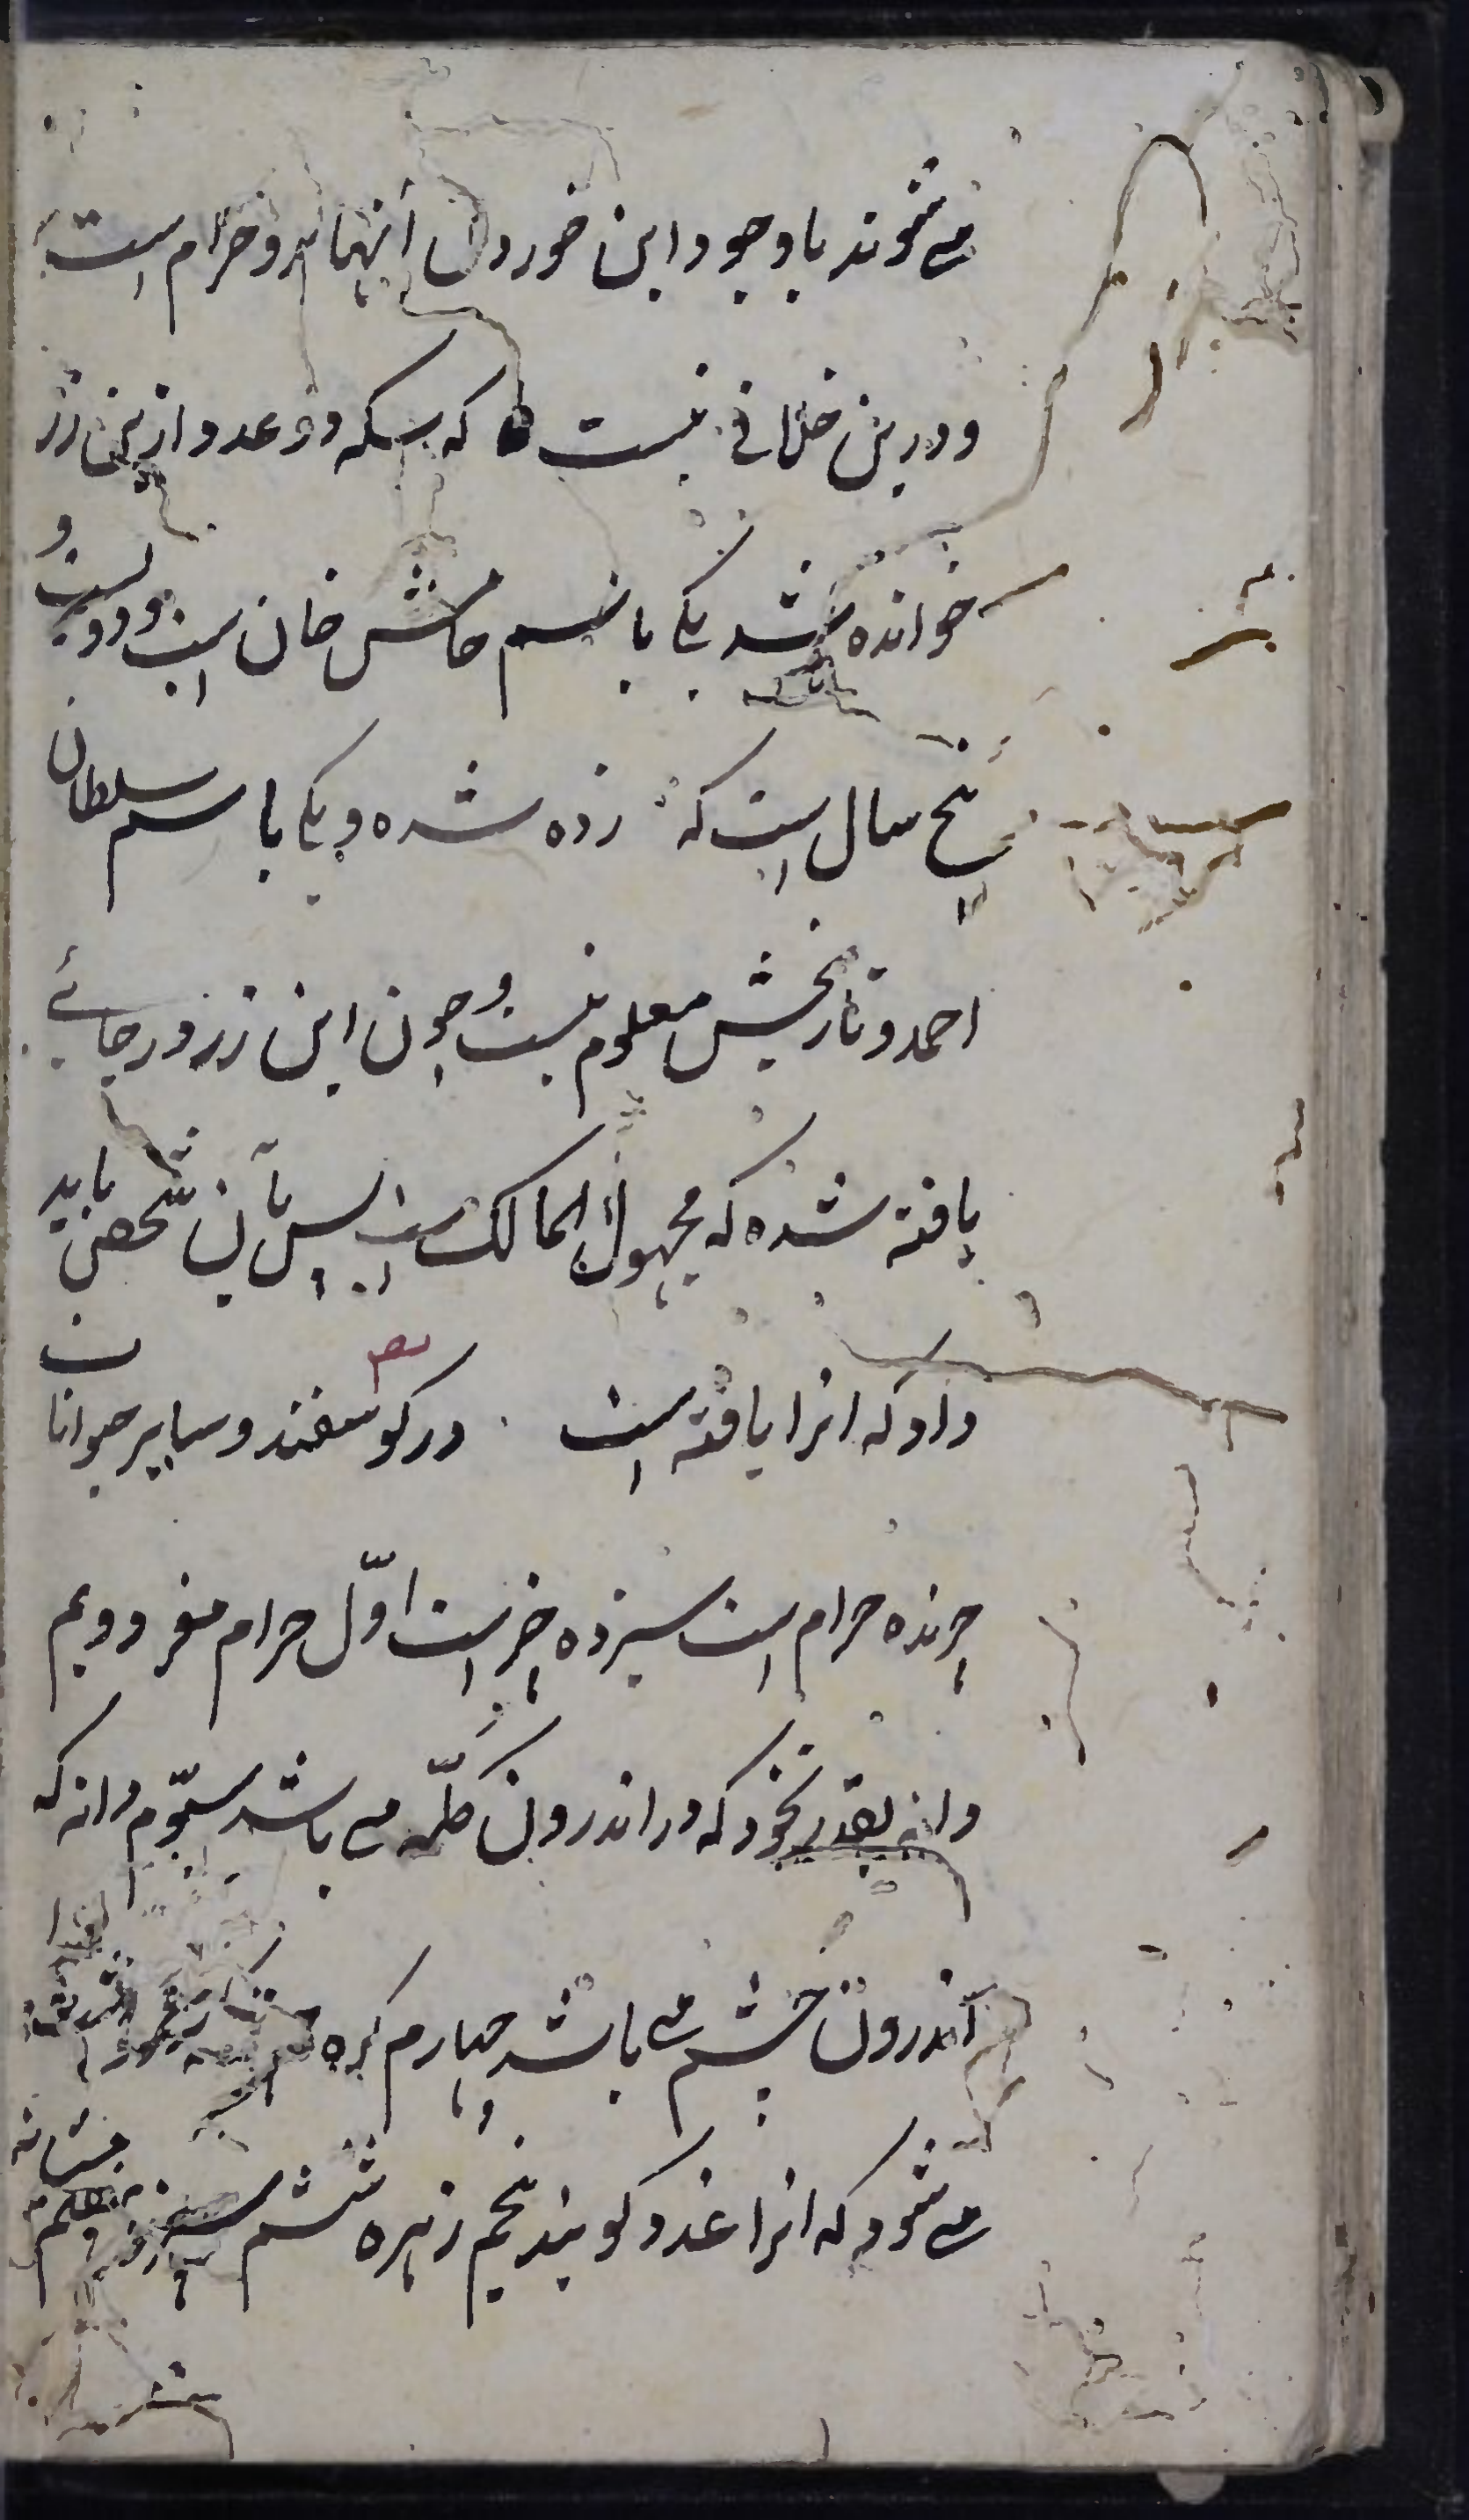 می شوند با وجود این خوردن آنها برو حرام است
و درین خلافی نیست که سکه دو عدد ازین زر
خوانده شد یکی باسم خان است و دویست و
پنج سال است که زده شده و یکی باسم سلطان
احمد و تاریخش معلوم نیست و چون این زر در جائی
یافته شده که مجهول المالک است پس بآن شخص باید
داد که انرا یافته است در کوسفند و سایر حیوانات
چرنده حرام است سیزده چیز است اوّل حرام مغز دویم
دانه بقدر نخود که در اندرون کلّه می باشد سیّوم دانه که
اندرون چشم می باشد چهارم کره
می شود که انرا غدد کویند پنجم زهره ششم سپرز هفتم مثانه